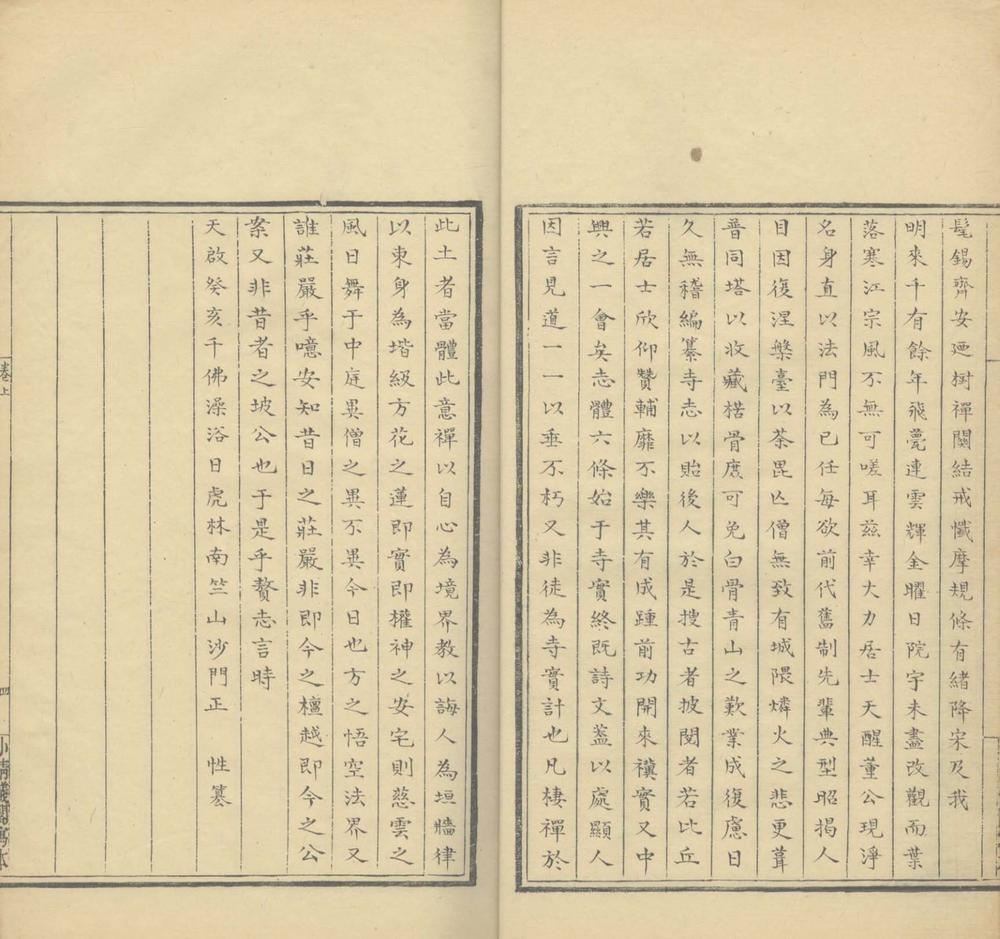 髦錫齊安廼樹禪關結戒懺摩規條有緒降宋及我
明來千有餘年飛甍連雲輝金曜日院宇未盡改觀而葉
落寒江宗風不無可嗟耳茲幸大力居士天醒董公現淨
名身直以法門為已任每欲前代舊制先輩典型昭揭人
目因復涅槃臺以荼毘亾僧無致有城隈燐火之悲更葺
普同塔以收藏楛骨庻可免白骨青山之歎業成復慮日
久無稽編纂寺志以貽後人於是搜古者披閱者若比丘
若居士欣仰贊輔靡不樂其有成踵前功開來禩實又中
興之一會矣志體六條始于寺實終旣詩文葢以處顯人
因言見道一一以垂不朽又非徒為寺實計也凡棲禪於
此土者當體此意禪以自心為境界教以誨人為垣牆律
以束身為堦級方花之蓮即實即權神之安宅則慈雲之
風日舞于中庭異僧之異不異今日也方之悟空法界又
誰莊嚴乎噫安知昔日之莊嚴非即今之檀越即今之公
案又非昔者之坡公也于是乎贅志言時
天啟癸亥千佛澡浴日虎林南竺山沙門正 性䇿
卷上
四
小清儀閣寫本